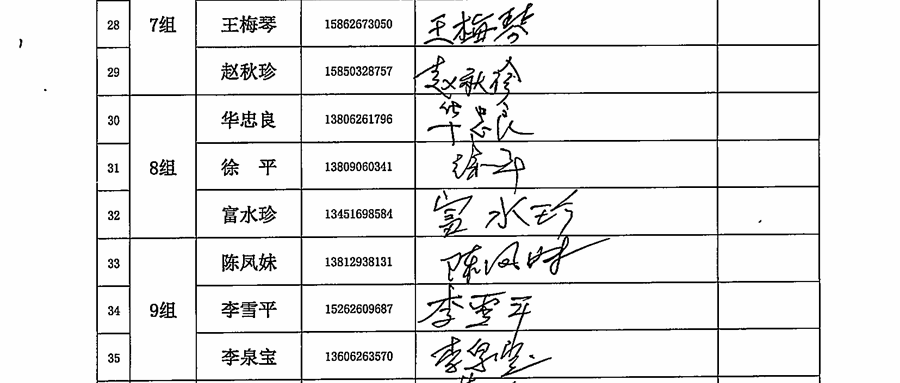 28 7组 王梅琴 15862673050 王梅琴
29 赵秋珍 15850328757 赵秋珍
30 华忠良 13806261796 华忠良
31 8组 徐 平 13809060341 徐平
32 富水珍 13451698584 富水珍
33 陈凤妹 13812938131 陈凤妹
34 9组 李雪平 15262609687 李雪平
35 李泉宝 13606263570 李泉宝